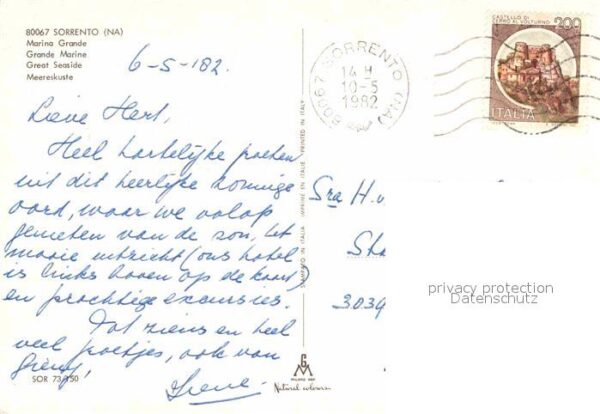 80067 SORRENTO (NA)
Marina Grande
Grande Marine
Great Seaside
Meereskuste
6-5-'82.
Lieve Hert,
Heel hartelijke groeten
uit dit heerlijke zonnige
oord, waar we volop
genieten van de zon, het
mooie uitzicht (ons hotel
is links boven op de kaart)
en prachtige excursies.
Tot ziens en heel
veel groetjes, ook van
Irene
SOR 73/150
STAMPATO IN ITALIA IMPRIMÉ EN ITALIE PRINTED IN ITALY
GM
Natural colours
80067 SORRENTO (NA)
14 H
10-5
1982
CASTELLO DI
CERRO AL VOLTURNO
200
ITALIA
Sra H. v
3039
privacy protection
Datenschutz